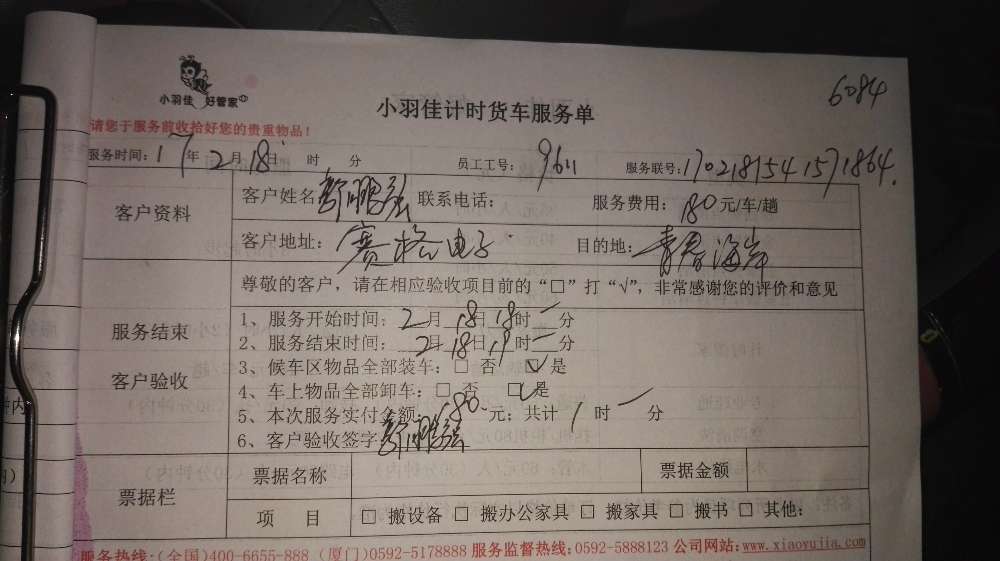 6084
小羽佳 好管家
小羽佳计时货车服务单
请您于服务前收拾好您的贵重物品！
服务时间：17年2月18日 时 分 员工工号：9611 服务联号：1702181541571864
客户资料 客户姓名 鹏 联系电话： 服务费用：180元/车/趟
客户地址：赛格电子 目的地：青春海岸
尊敬的客户，请在相应验收项目前的“□”打“√”，非常感谢您的评价和意见
服务结束
客户验收
1、服务开始时间：2月18日18时一分
2、服务结束时间：2月18日19时一分
3、候车区物品全部装车：□ 否 ☑是
4、车上物品全部卸车：□ 否 ☑是
5、本次服务实付金额：180元；共计1时一分
6、客户验收签字 鹏
票据栏 票据名称 票据金额
项 目 □ 搬设备 □ 搬办公家具 □ 搬家具 □ 搬书 □ 其他：
服务热线：(全国)400-6655-888 (厦门)0592-5178888 服务监督热线：0592-5888123 公司网站：www.xiaoyujia.com